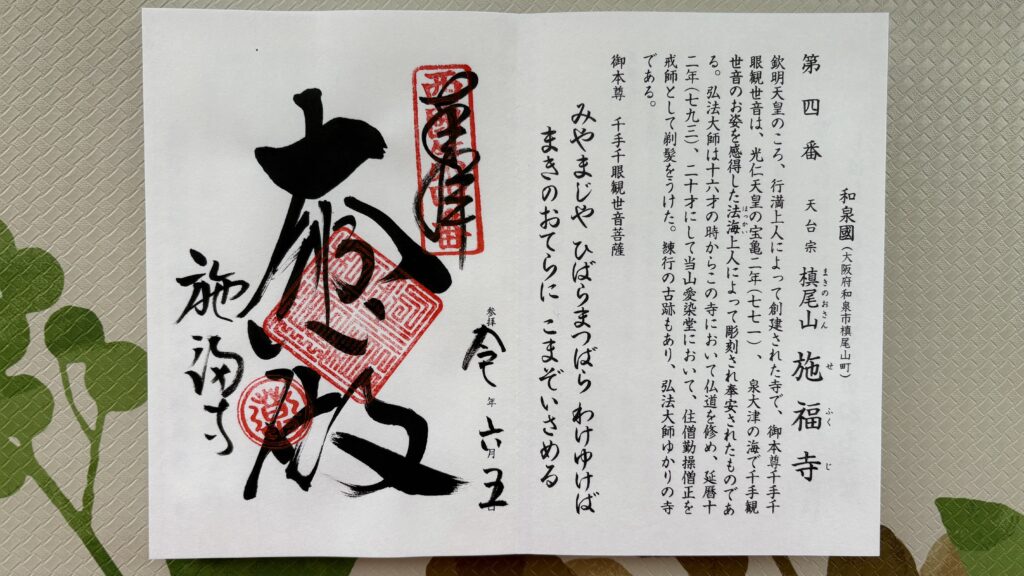 和泉國(大阪府和泉市槙尾山町)
第四番 天台宗 槙尾山 施福寺
まきのおさん せふくじ
欽明天皇のころ、行満上人によって創建された寺で、御本尊千手千
眼観世音は、光仁天皇の宝亀二年(七七一)、泉大津の海で千手観
世音のお姿を感得した法海上人によって彫刻され奉安されたものであ
はっかい
る。弘法大師は十六才の時からこの寺において仏道を修め、延暦十
二年(七九三)、二十才にして当山愛染堂において、住僧勤操僧正を
戒師として剃髪をうけた。練行の古跡もあり、弘法大師ゆかりの寺
である。
御本尊 千手千眼観世音菩薩
みやまじや ひばらまつばら わけゆけば
まきのおてらに こまぞいさめる
奉拝
参拝 令 年 六月 五日
大悲殿
施福寺